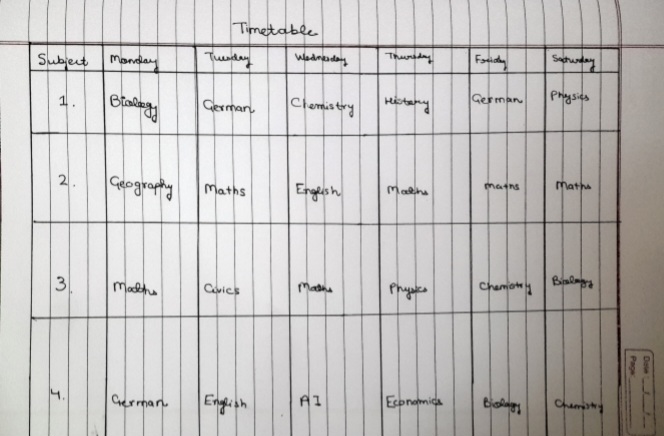 Timetable
Subject Monday Tuesday Wednesday Thursday Friday Saturday
1. Biology German Chemistry History German Physics
2. Geography Maths English Maths maths Maths
3. Maths Civics Maths Physics Chemistry Biology
4. German English AI Economics Biology Chemistry
Date
Page